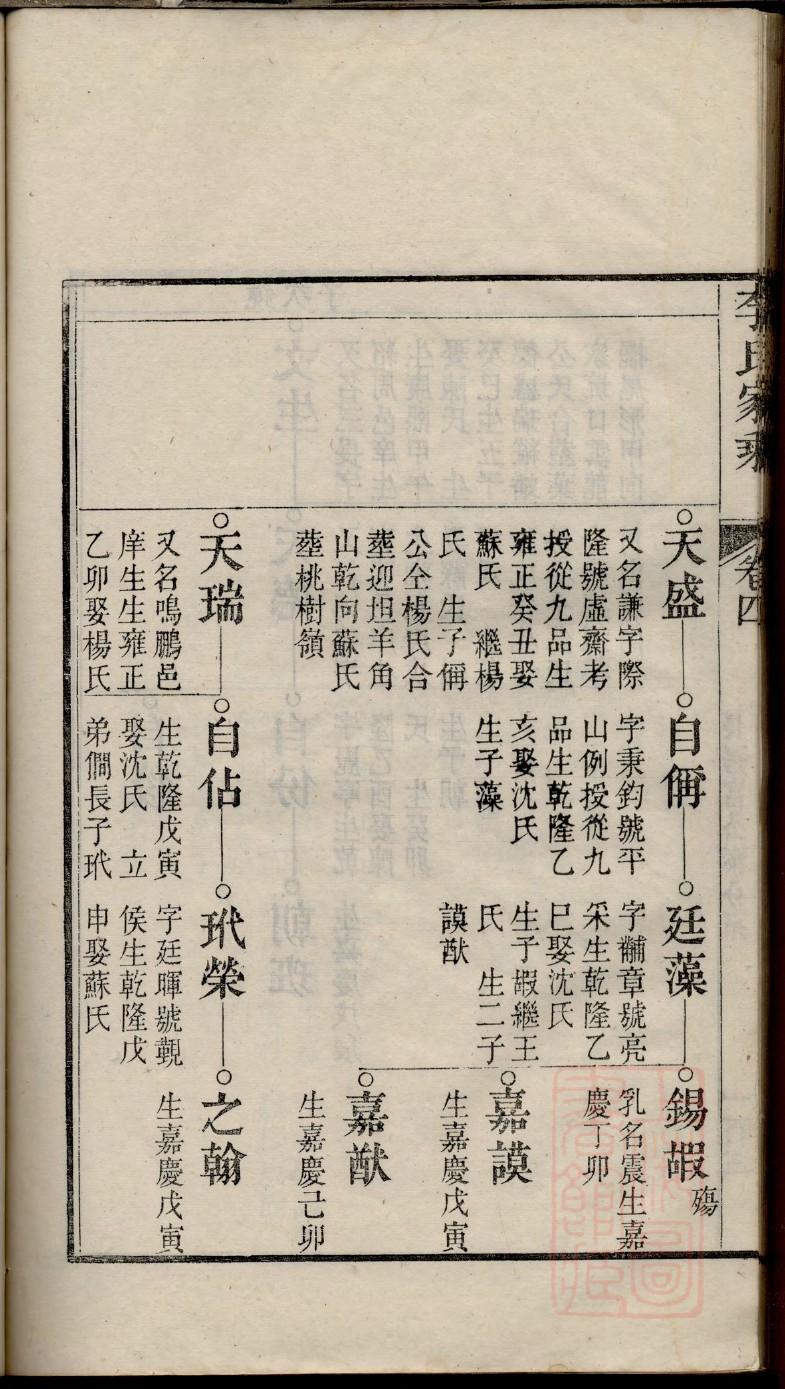 李氏家乘
卷四
天盛
又名謙字際
隆號虛齋考
授從九品生
雍正癸丑娶
蘇氏 繼楊
氏 生子偁
公仝楊氏合
塟迎坦羊角
山乾向蘇氏
塟桃樹嶺
自偁
字秉鈞號平
山例授從九
品生乾隆乙
亥娶沈氏
生子藻
廷藻
字黼章號亮
采生乾隆乙
巳娶沈氏
生子嘏繼王
氏 生二子
謨猷
錫嘏
殤
乳名震生嘉
慶丁卯
嘉謨
生嘉慶戊寅
嘉猷
生嘉慶己卯
天瑞
又名鳴鵬邑
庠生生雍正
乙卯娶楊氏
自佔
生乾隆戊寅
娶沈氏 立
弟僩長子玳
玳榮
字廷暉號覲
侯生乾隆戊
申娶蘇氏
之翰
生嘉慶戊寅